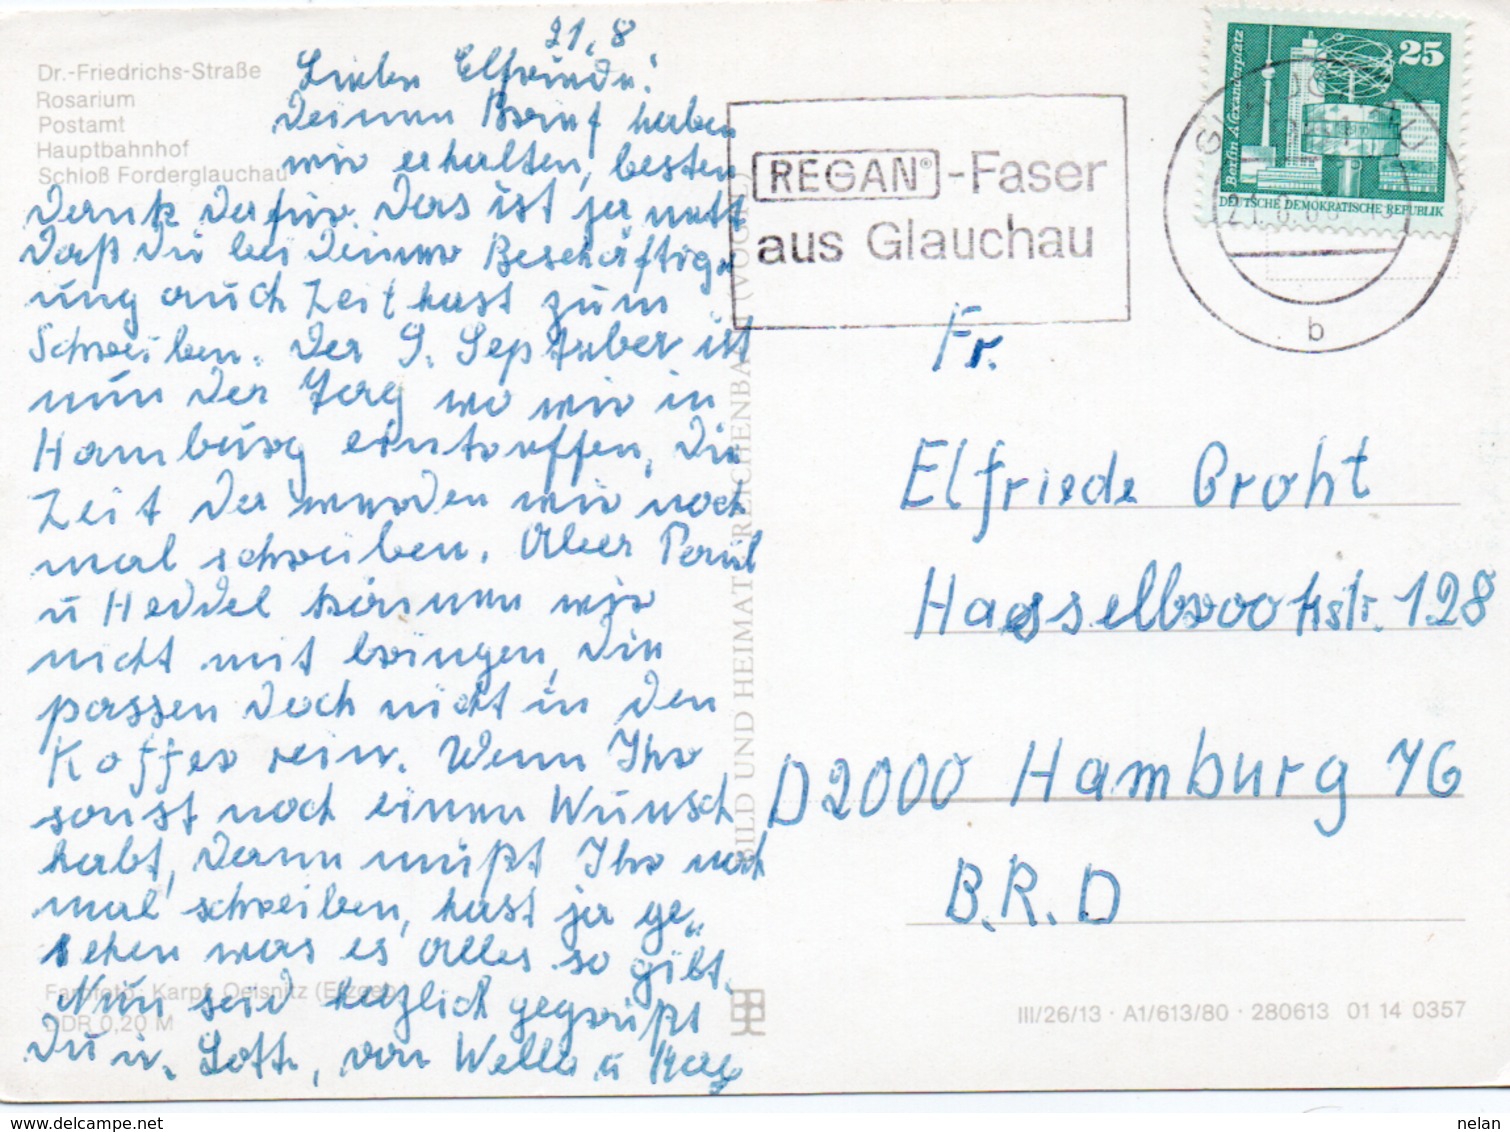 21.8.
Dr.-Friedrichs-Straße
Rosarium
Postamt
Hauptbahnhof
Schloß Forderglauchau
Liebe Elfriede!
Deinen Brief haben
wir erhalten, besten
Dank dafür. Das ist ja nett
daß Du bei Deiner Beschäftig
ung auch Zeit hast zum
Schreiben. Der 9. September ist
nun der Tag wo wir in
Hamburg eintreffen, die
Zeit der werden wir noch
mal schreiben. Aber Paul
u Heddel können wir
nicht mit bringen, die
passen doch nicht in den
Koffer rein. Wenn Ihr
sonst noch einen Wunsch
habt, dann müßt Ihr noch
mal schreiben, hast ja ge„
sehen was es alles so gibt.
Nun seid herzlich gegrüßt
Du u. Lotte, von Wella u
Farbfoto: Karpf, Oelsnitz (Erzgeb.)
DDR 0,20 M
BILD UND HEIMAT REICHENBACH (VOGTL)
REGAN® -Faser
aus Glauchau
25
Berlin Alexanderplatz
DEUTSCHE DEMOKRATISCHE REPUBLIK
b
Fr.
Elfriede Groht
Hasselbrookstr. 128
D2000 Hamburg 76
B.R.D
III/26/13 · A1/613/80 · 280613 01 14 0357
delcampe.net
nelan